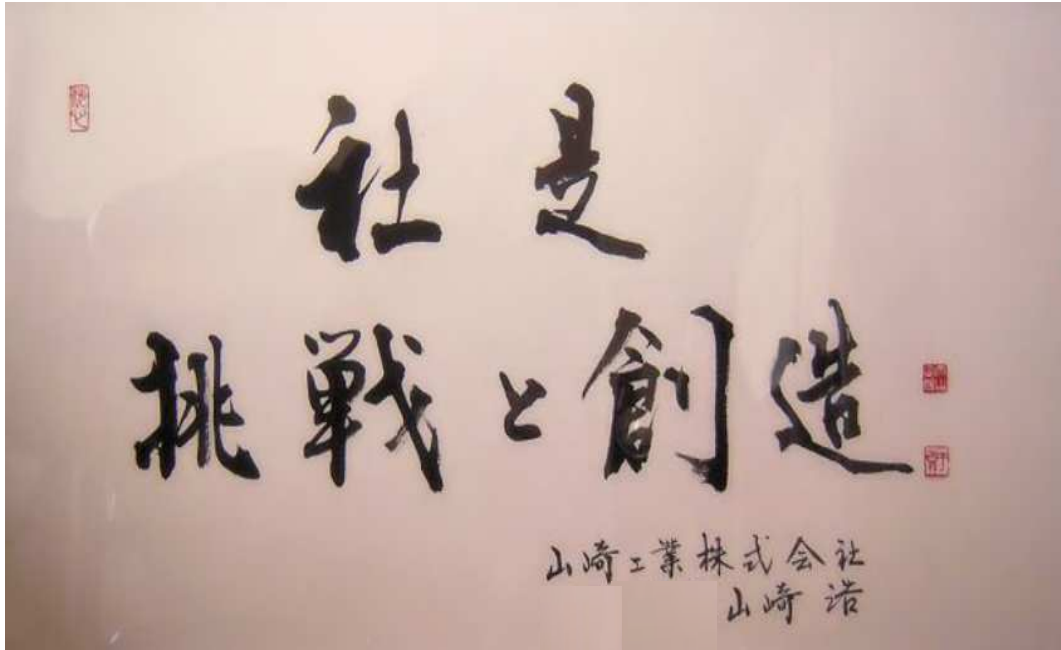 社是
挑戦と創造
山崎工業株式会社
山崎 浩